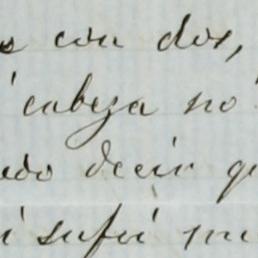 s con dos,
i cabeza no
edo decir q
i sufri mi